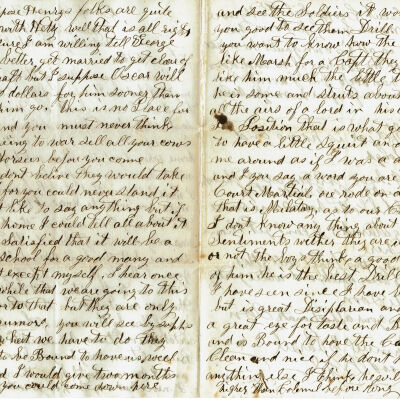 pose Henrys folks are quite
with Hety will that is all right
sure I am willing tell George
better get married to get clear of
aft but I suppose Oscar will
d dollars for him sooner than
him go. this is no place for
and you must never think
ing to war sell all your cows
horses before you come
dont believe they would take
for you could never stand it
t like to say anything but if
home I could tell all about it
Satisfied that it will be a
school for a good many and
t except myself, I hear once
while that we are going to this
or to that but they are only
rumors you will see by
what we have to do they
to be Bound to have us,
d I would give two months
you could come down here
and see the Soldiers it wo
you good to see them Drill
you want to know how the
like Marsh for a Capt they
like him much the little
he in some and struts about
all the airs of a lord in his
Position that is what go
to have a little Squirt
me around as if I was a
and I you say a word you are
Court Martial, one rode on a
that is Military, as to our C
I dont know any thing about
Sentiments wether they are
or not the boys think a good
of him he is the best Drill
I have seen since I have
but is great Disiplarian and
a great eye for taste and B
and is Bound to have the Ca
Clean and nice if he dont
anything else I think he wil
higher than Colonel before long